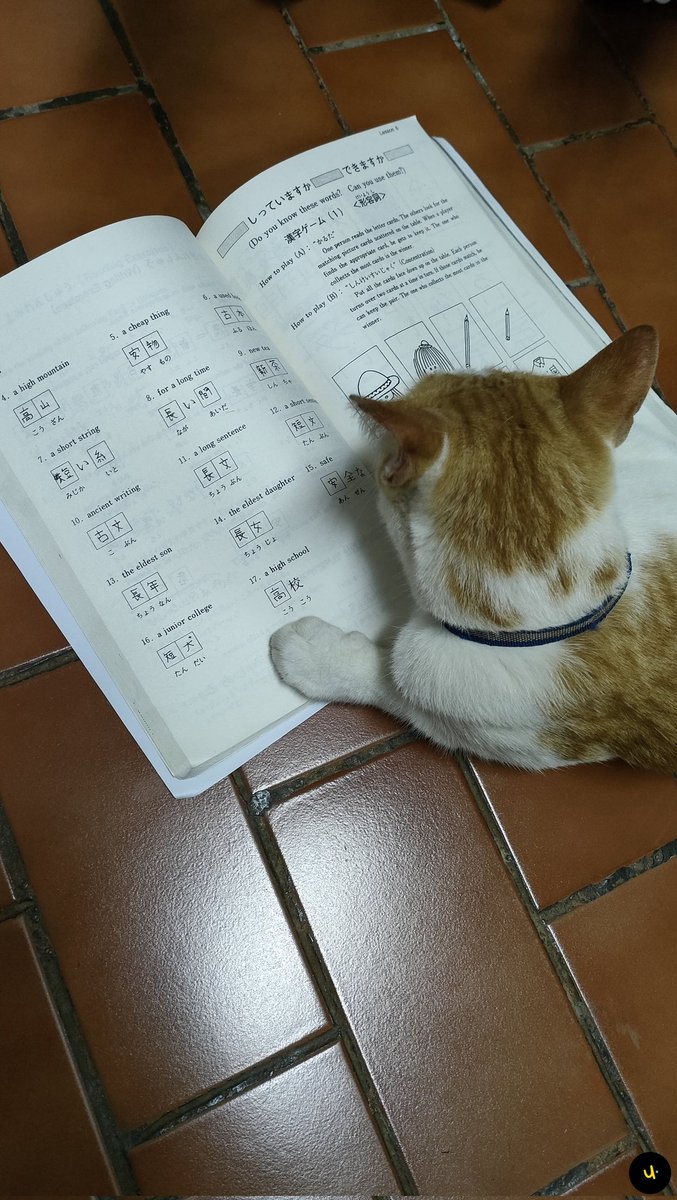 4. a high mountain
高山
こう ざん
5. a cheap thing
安物
やす もの
6. a used
古本
ふる ほん
7. a short string
短い糸
みじか いと
8. for a long time
長い間
なが あいだ
9. new
新茶
しん ちゃ
10. ancient writing
古文
こ ぶん
11. a long sentence
長文
ちょう ぶん
12. a short
短文
たん ぶん
13. the eldest son
長年
ちょう なん
14. the eldest daughter
長女
ちょう じょ
15. safe
安全な
あん ぜん
16. a junior college
短犬
たん だい
17. a high school
高校
こう こう
Lesson 6
しっていますか できますか
(Do you know these words? Can you use them?)
漢字ゲーム (1) <形容詞>
How to play (A) : "かるた"
One person reads the letter cards. The others look for the
matching picture cards scattered on the table. When a player
finds the appropriate card, he gets to keep it. The one who
collects the most cards is the winner.
How to play (B) : "しんけいすいじゃく" (Concentration)
Put all the cards face down up in the table. Each person
turns over two cards at a time in turn. If these cards match, he
can keep the pair. The one who collects the most cards is the
winner.